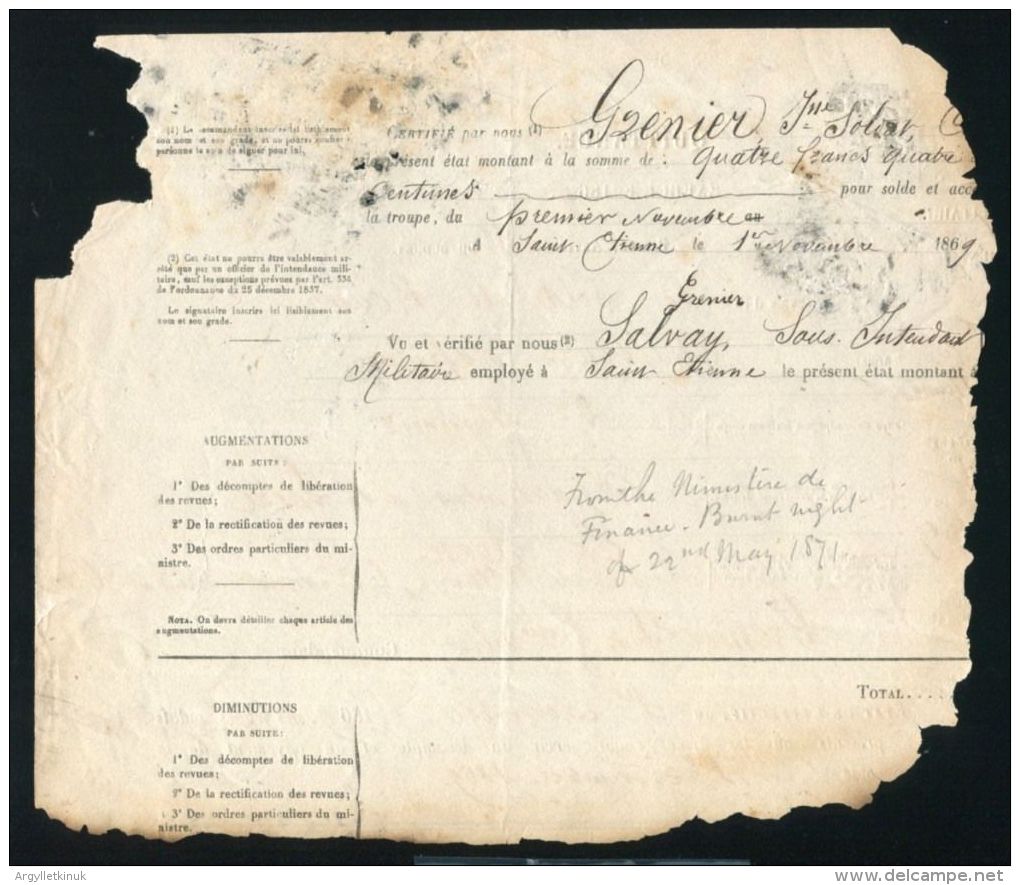 (1) Le commandant inscrira ici lisiblement
son nom et son grade, et ne pourra
personne le soin de signer pour lui.
CERTIFIÉ par nous (1) Grenier
le présent état montant à la somme de : quatre francs quatre
Centimes pour solde et acc
la troupe, du premier Novembre au
à Saint-Etienne le 1er Novembre 1869
(2) Cet état ne pourra être valablement ar-
rêté que par un officier de l'intendance mili-
taire, sauf les exceptions prévues par l'art. 334
de l'ordonnance du 25 décembre 1837.
Le signataire inscrira ici lisiblement son
nom et son grade.
Grenier
Vu et vérifié par nous (2) Salvay, Sous-Intendant
Militaire employé à Saint Etienne le présent état montant à
AUGMENTATIONS
PAR SUITE :
1° Des décomptes de libération
des revues ;
2° De la rectification des revues ;
3° Des ordres particuliers du mi-
nistre.
NOTA. On devra détailler chaque article des
augmentations.
From the Ministère de
Finance - Burnt night
of 22nd May 1871
TOTAL....
DIMINUTIONS
PAR SUITE :
1° Des décomptes de libération
des revues ;
2° De la rectification des revues ;
3° Des ordres particuliers du mi-
nistre.
Argylletkinuk
delcampe.net